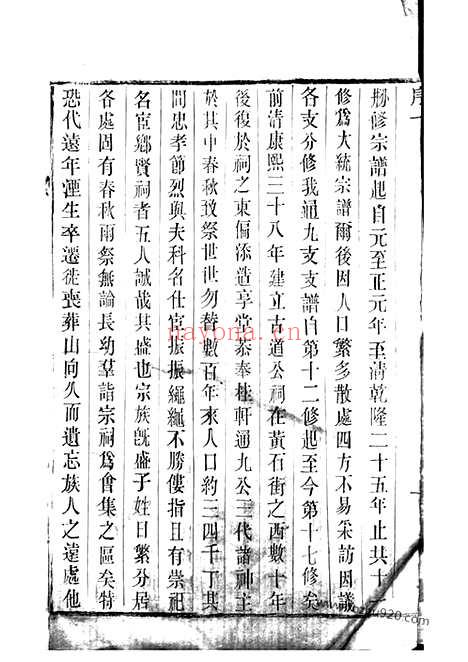 序一
刱修宗譜起自元至正元年至清乾隆二十五年止共十一
修爲大統宗譜爾後因人口繁多散處四方不易采訪因議
各支分修我通九支支譜自第十二修起至今第十七修矣
前清康熙三十八年建立古道公祠在黃石街之西數十年
後復於祠之東偏添造享堂恭奉桂軒通九公三代諸神主
於其中春秋致祭世世勿替數百年來人口約三四千丁其
間忠孝節烈與夫科名仕宦振振繩繩不勝僂指且有崇祀
名宦鄉賢祠者五人誠哉其盛也宗族旣盛子姓日繁分居
各處固有春秋兩祭無論長幼羣詣宗祠爲會集之區矣特
恐代遠年湮生卒遷徙喪葬山向久而遺忘族人之遠處他
nayona.cn